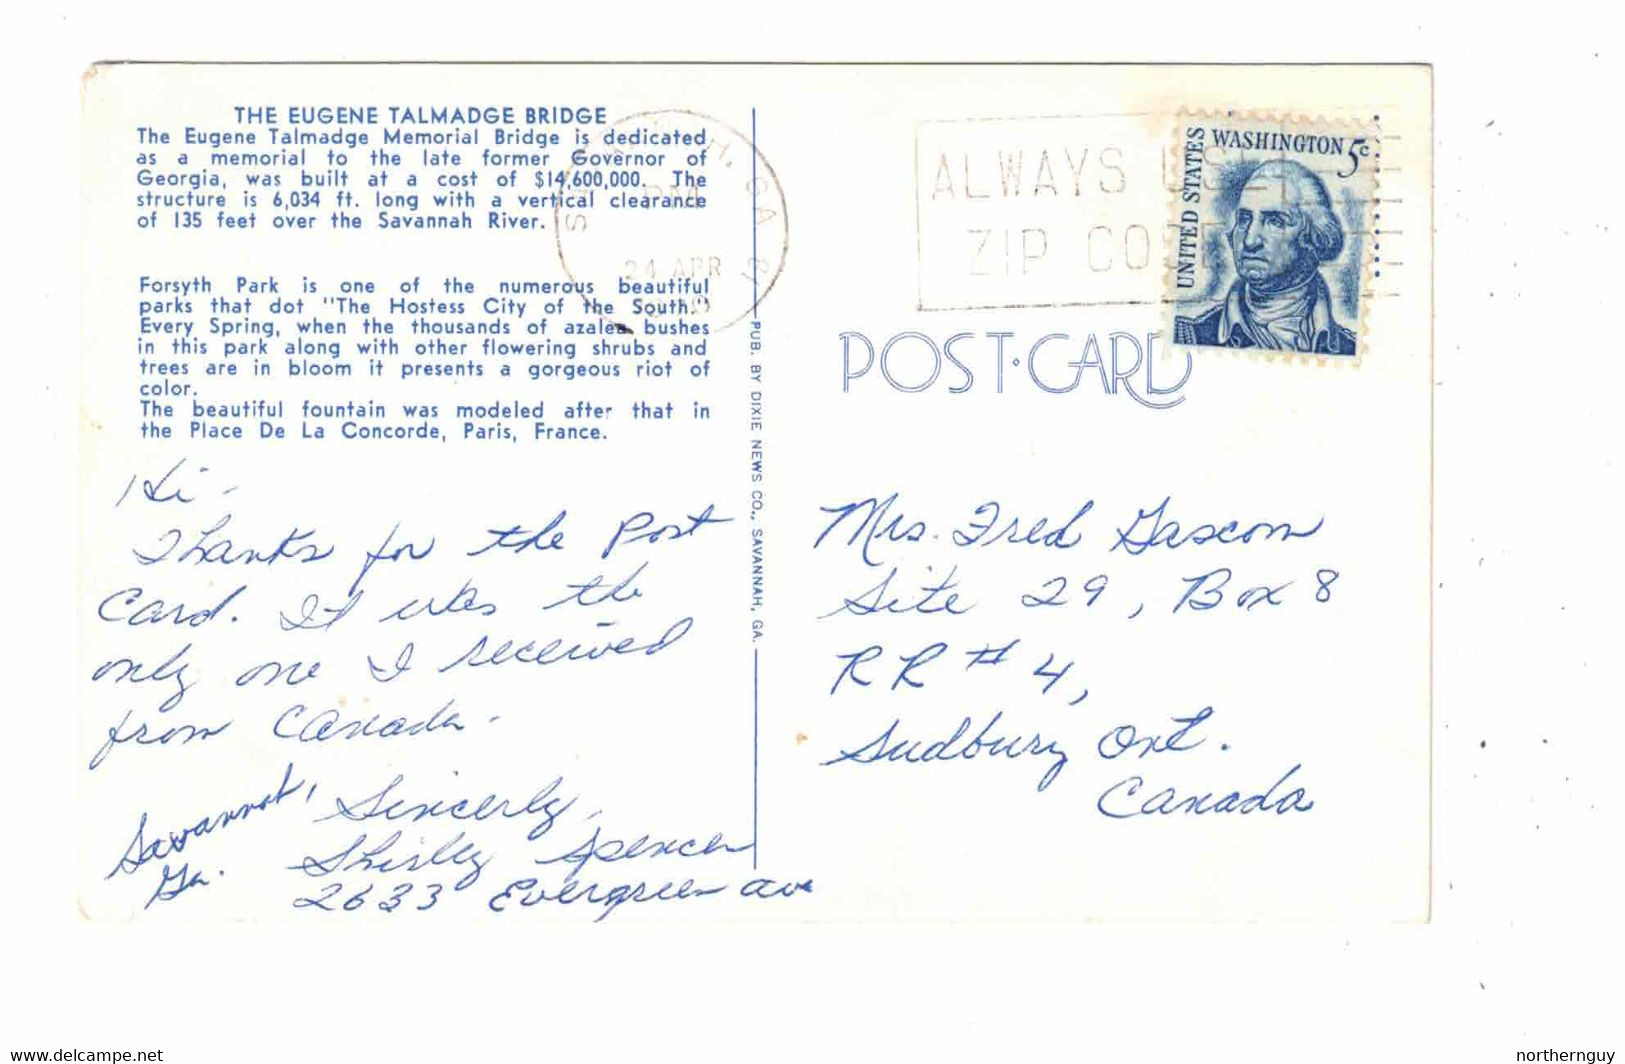 THE EUGENE TALMADGE BRIDGE
The Eugene Talmadge Memorial Bridge is dedicated
as a memorial to the late former Governor of
Georgia, was built at a cost of $14,600,000. The
structure is 6,034 ft. long with a vertical clearance
of 135 feet over the Savannah River.
Forsyth Park is one of the numerous beautiful
parks that dot "The Hostess City of the South."
Every Spring, when the thousands of azalea bushes
in this park along with other flowering shrubs and
trees are in bloom it presents a gorgeous riot of
color.
The beautiful fountain was modeled after that in
the Place De La Concorde, Paris, France.
Hi -
Thanks for the Post
Card. It was the
only one I received
from Canada.
Sincerly,
Shirley Spencer
2633 Evergreen ave
Savannah,
Ga.
PUB. BY DIXIE NEWS CO., SAVANNAH, GA.
GA
PM
24 APR
ALWAYS USE
ZIP CODE
UNITED STATES
WASHINGTON 5c
POST CARD
Mrs. Fred Gascon
Site 29, Box 8
RR # 4,
Sudbury Ont.
Canada
www.delcampe.net
northernguy